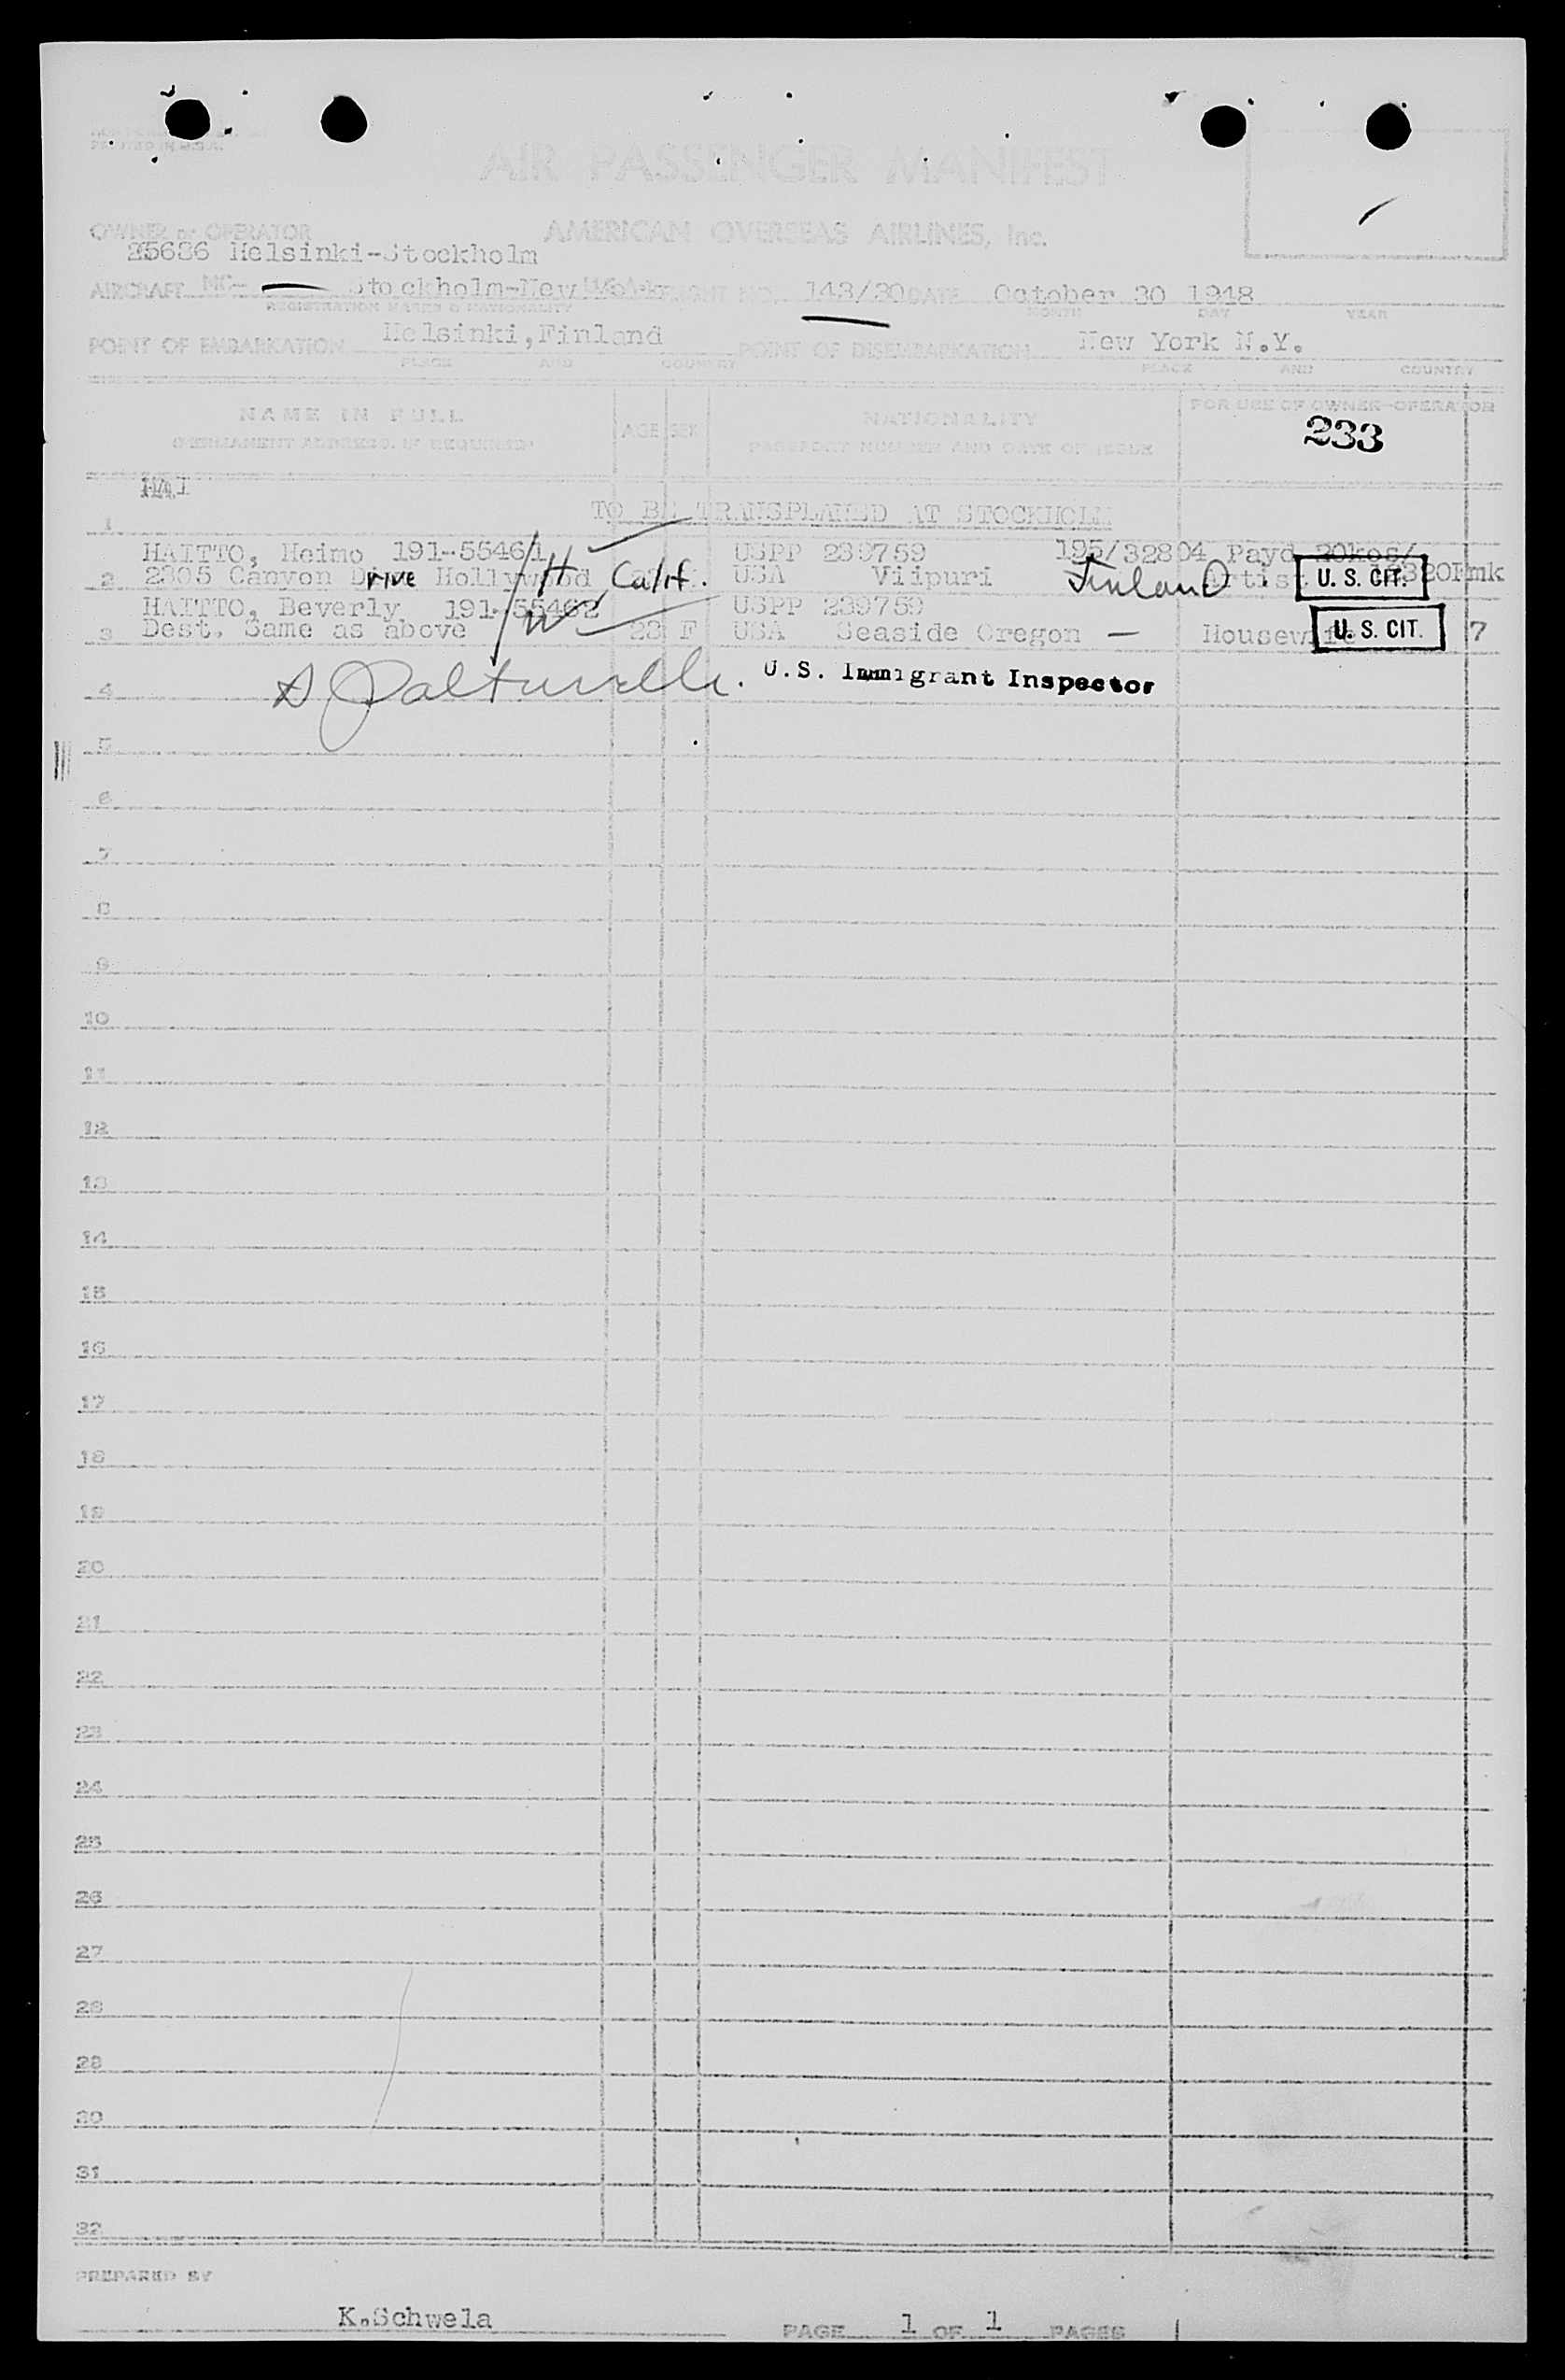 PRINTED IN U.S.A.
AIR PASSENGER MANIFEST
OWNER or OPERATOR AMERICAN OVERSEAS AIRLINES, Inc.
25686 Helsinki-Stockholm
AIRCRAFT NC- Stockholm-New York FLIGHT NO. 143/30 DATE October 30 1948
REGISTRATION MARKS & NATIONALITY MONTH DAY YEAR
POINT OF EMBARKATION Helsinki,Finland POINT OF DISEMBARKATION New York N.Y.
PLACE AND COUNTRY PLACE AND COUNTRY
NAME IN FULL AGE SEX NATIONALITY FOR USE OF OWNER-OPERATOR
(PERMANENT ADDRESS, IF REQUIRED) PASSPORT NUMBER AND DATE OF ISSUE 233
1 TO BE TRANSPLANED AT STOCKHOLM
HAITTO, Heimo 191-55461 H USPP 239759 195/32804 Payd 20kos/
2 2305 Canyon Drive Hollywood Calif. USA Viipuri Finland Artist U. S. CIT.
HAITTO, Beverly 191-55462 W USPP 239759
3 Dest. Same as above 23 F USA Seaside Oregon — Housewife U. S. CIT. 7
4 U.S. Immigrant Inspector
5
6
7
8
9
10
11
12
13
14
15
16
17
18
19
20
21
22
23
24
25
26
27
28
29
30
31
32
PREPARED BY
K.Schwela PAGE 1 OF 1 PAGES